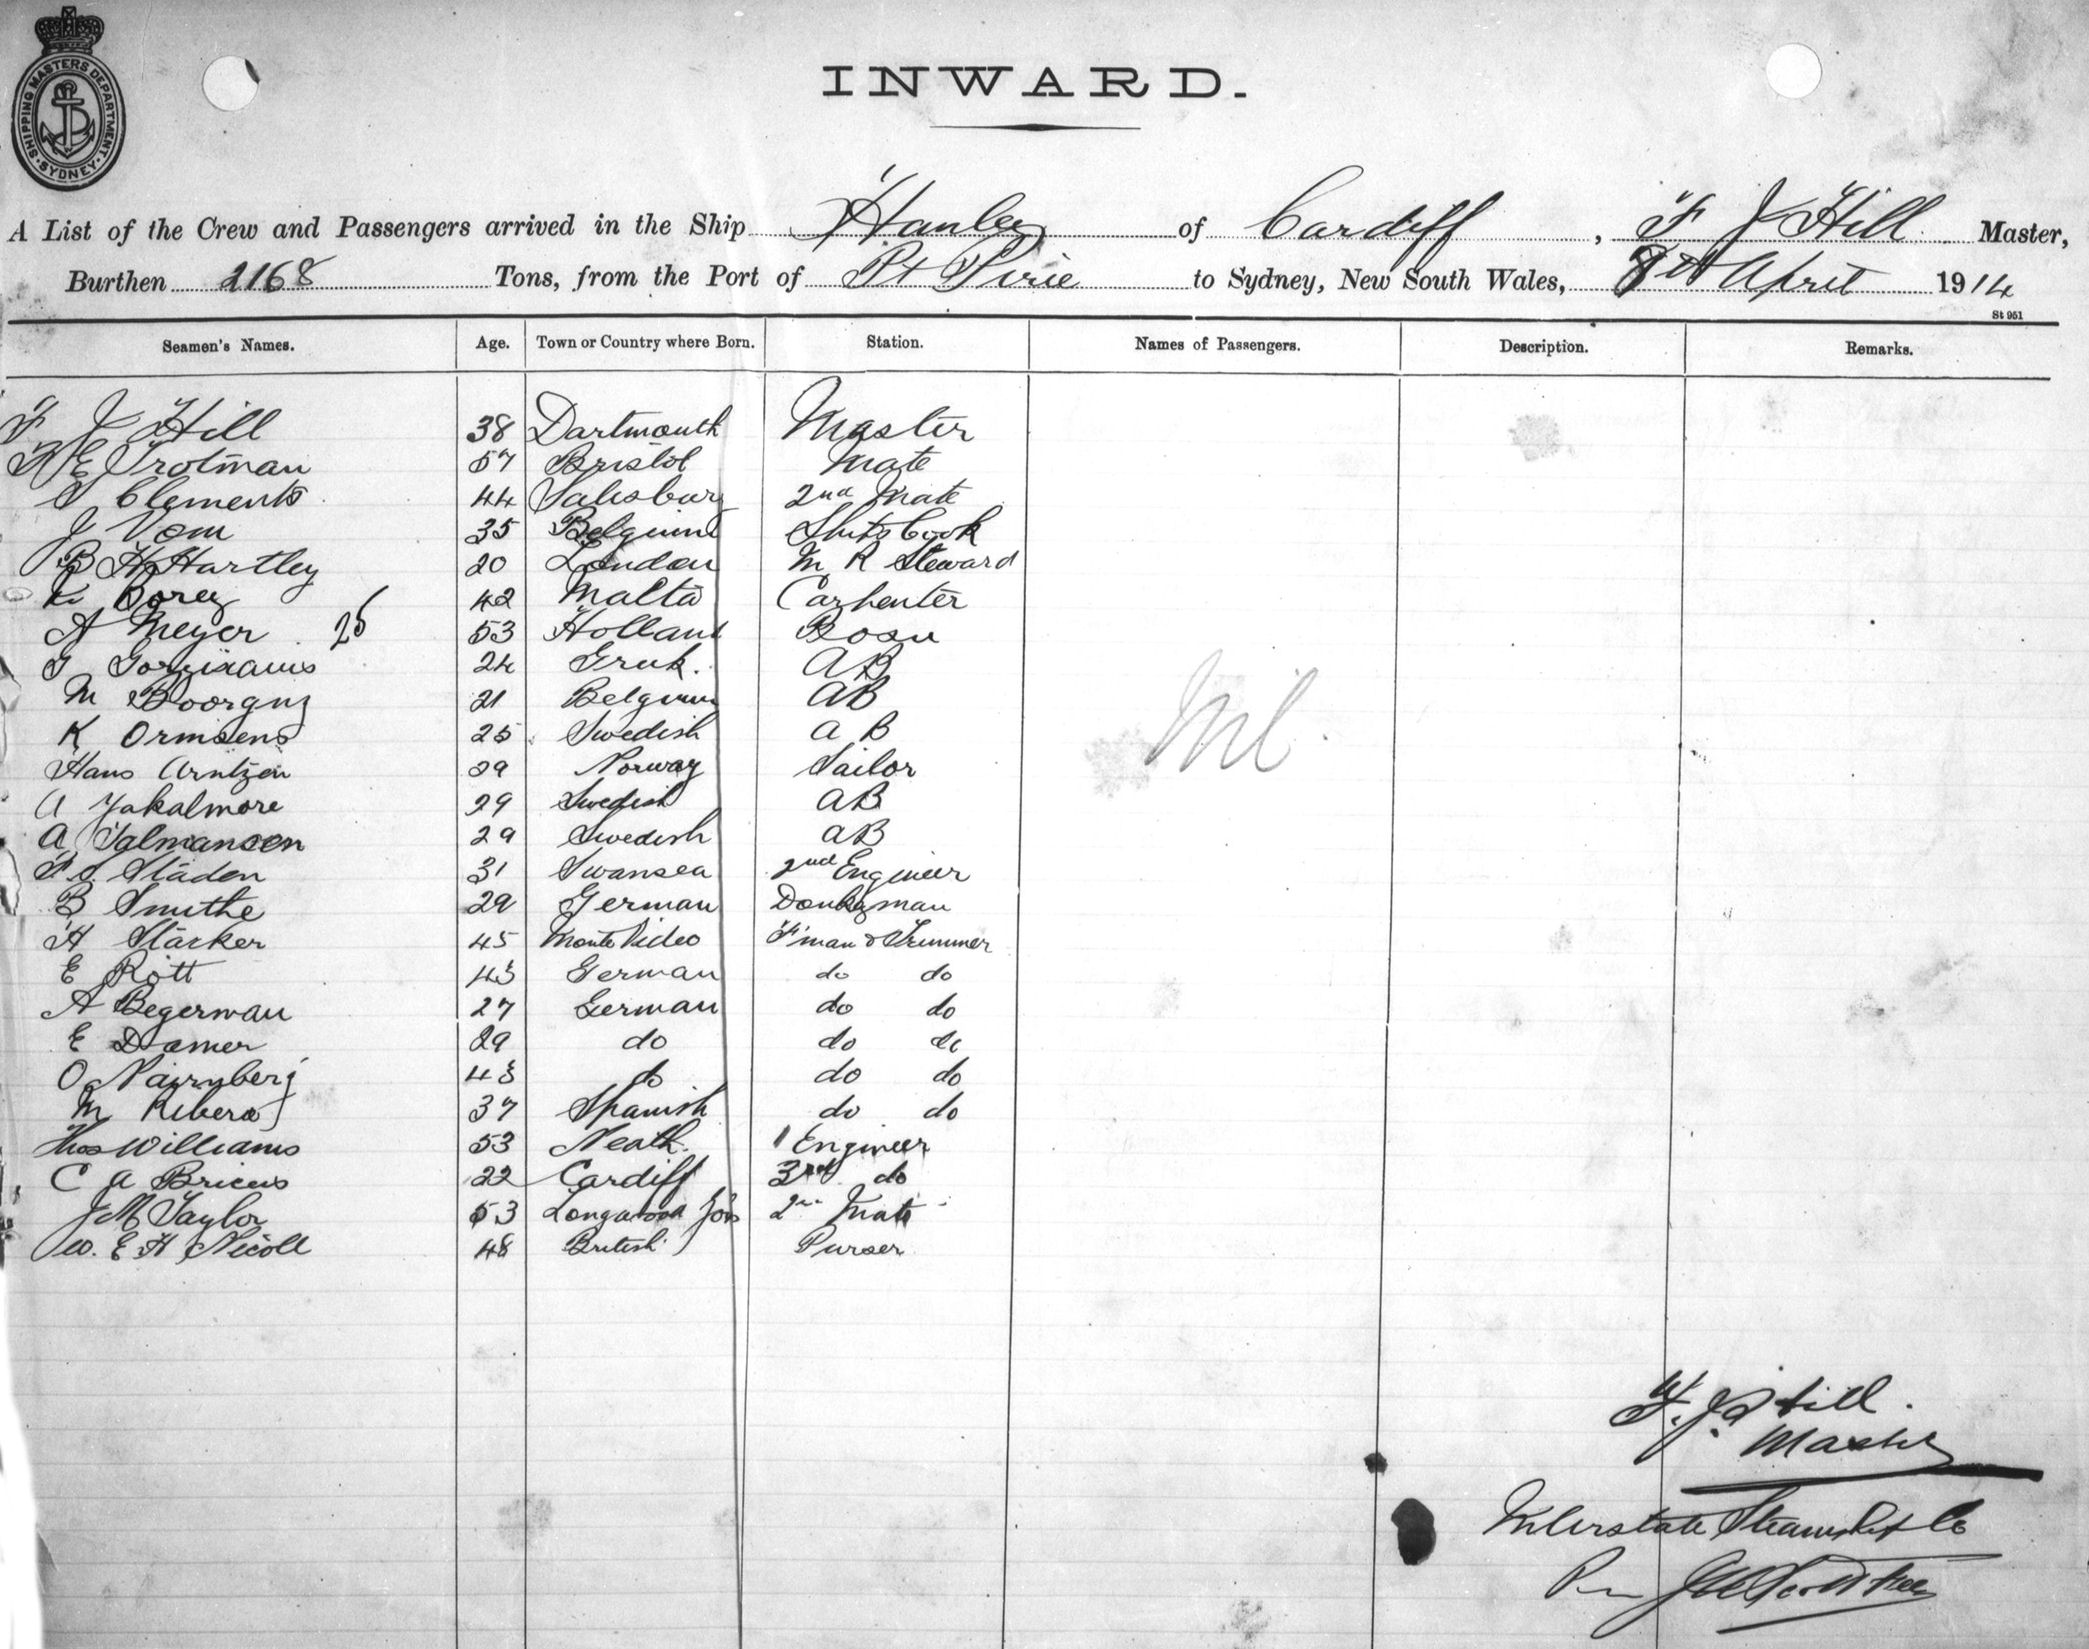 SHIPPING MASTERS DEPARTMENT. SYDNEY.
INWARD.
A List of the Crew and Passengers arrived in the Ship Hanley of Cardiff, F J Hill Master,
Burthen 2168 Tons, from the Port of Pt Pirie to Sydney, New South Wales, 8th April 1914
St 951
Seamen's Names. Age. Town or Country where Born. Station. Names of Passengers. Description. Remarks.
F J Hill 38 Dartmouth Master
E Trotman 57 Bristol Mate
S Clements 44 Salisbury 2nd Mate
J Vom 35 Belgium Ships Cook
B H Hartley 20 London M R Steward
Borey 42 Malta Carpenter
A Meyer 25 53 Holland Bosn
G 24 Greek. AB
M 21 Belgium AB
K Ormsens 25 Swedish A B
Hans Arntzen 29 Norway Sailor
Nil.
A Jakalmore 29 Swedish AB
A Talmansen 29 Swedish AB
F. J. Staden 31 Swansea 2nd Engineer
B Smithe 29 German Donkeyman
H Starker 45 Monte Video F'man & Trimmer
E Rott 43 German do do
A Begerman 27 German do do
E Damer 29 do do do
O 43 do do do
M Ribera 37 Spanish do do
Thos Williams 53 Neath. 1 Engineer
C A 22 Cardiff 3rd do
J M Taylor 53 2nd Mate
W. E H Nicoll 48 British Purser
F. J. Hill.
Master
Interstate Steamship Co
Per